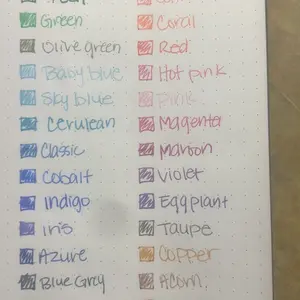 Green
Olive green
Baby blue
Sky blue
Cerulean
Classic
Cobalt
Indigo
Iris
Azure
Blue Grey
Coral
Red
Hot pink
Pink
Magenta
Maroon
Violet
Eggplant
Taupe
Copper
Acorn